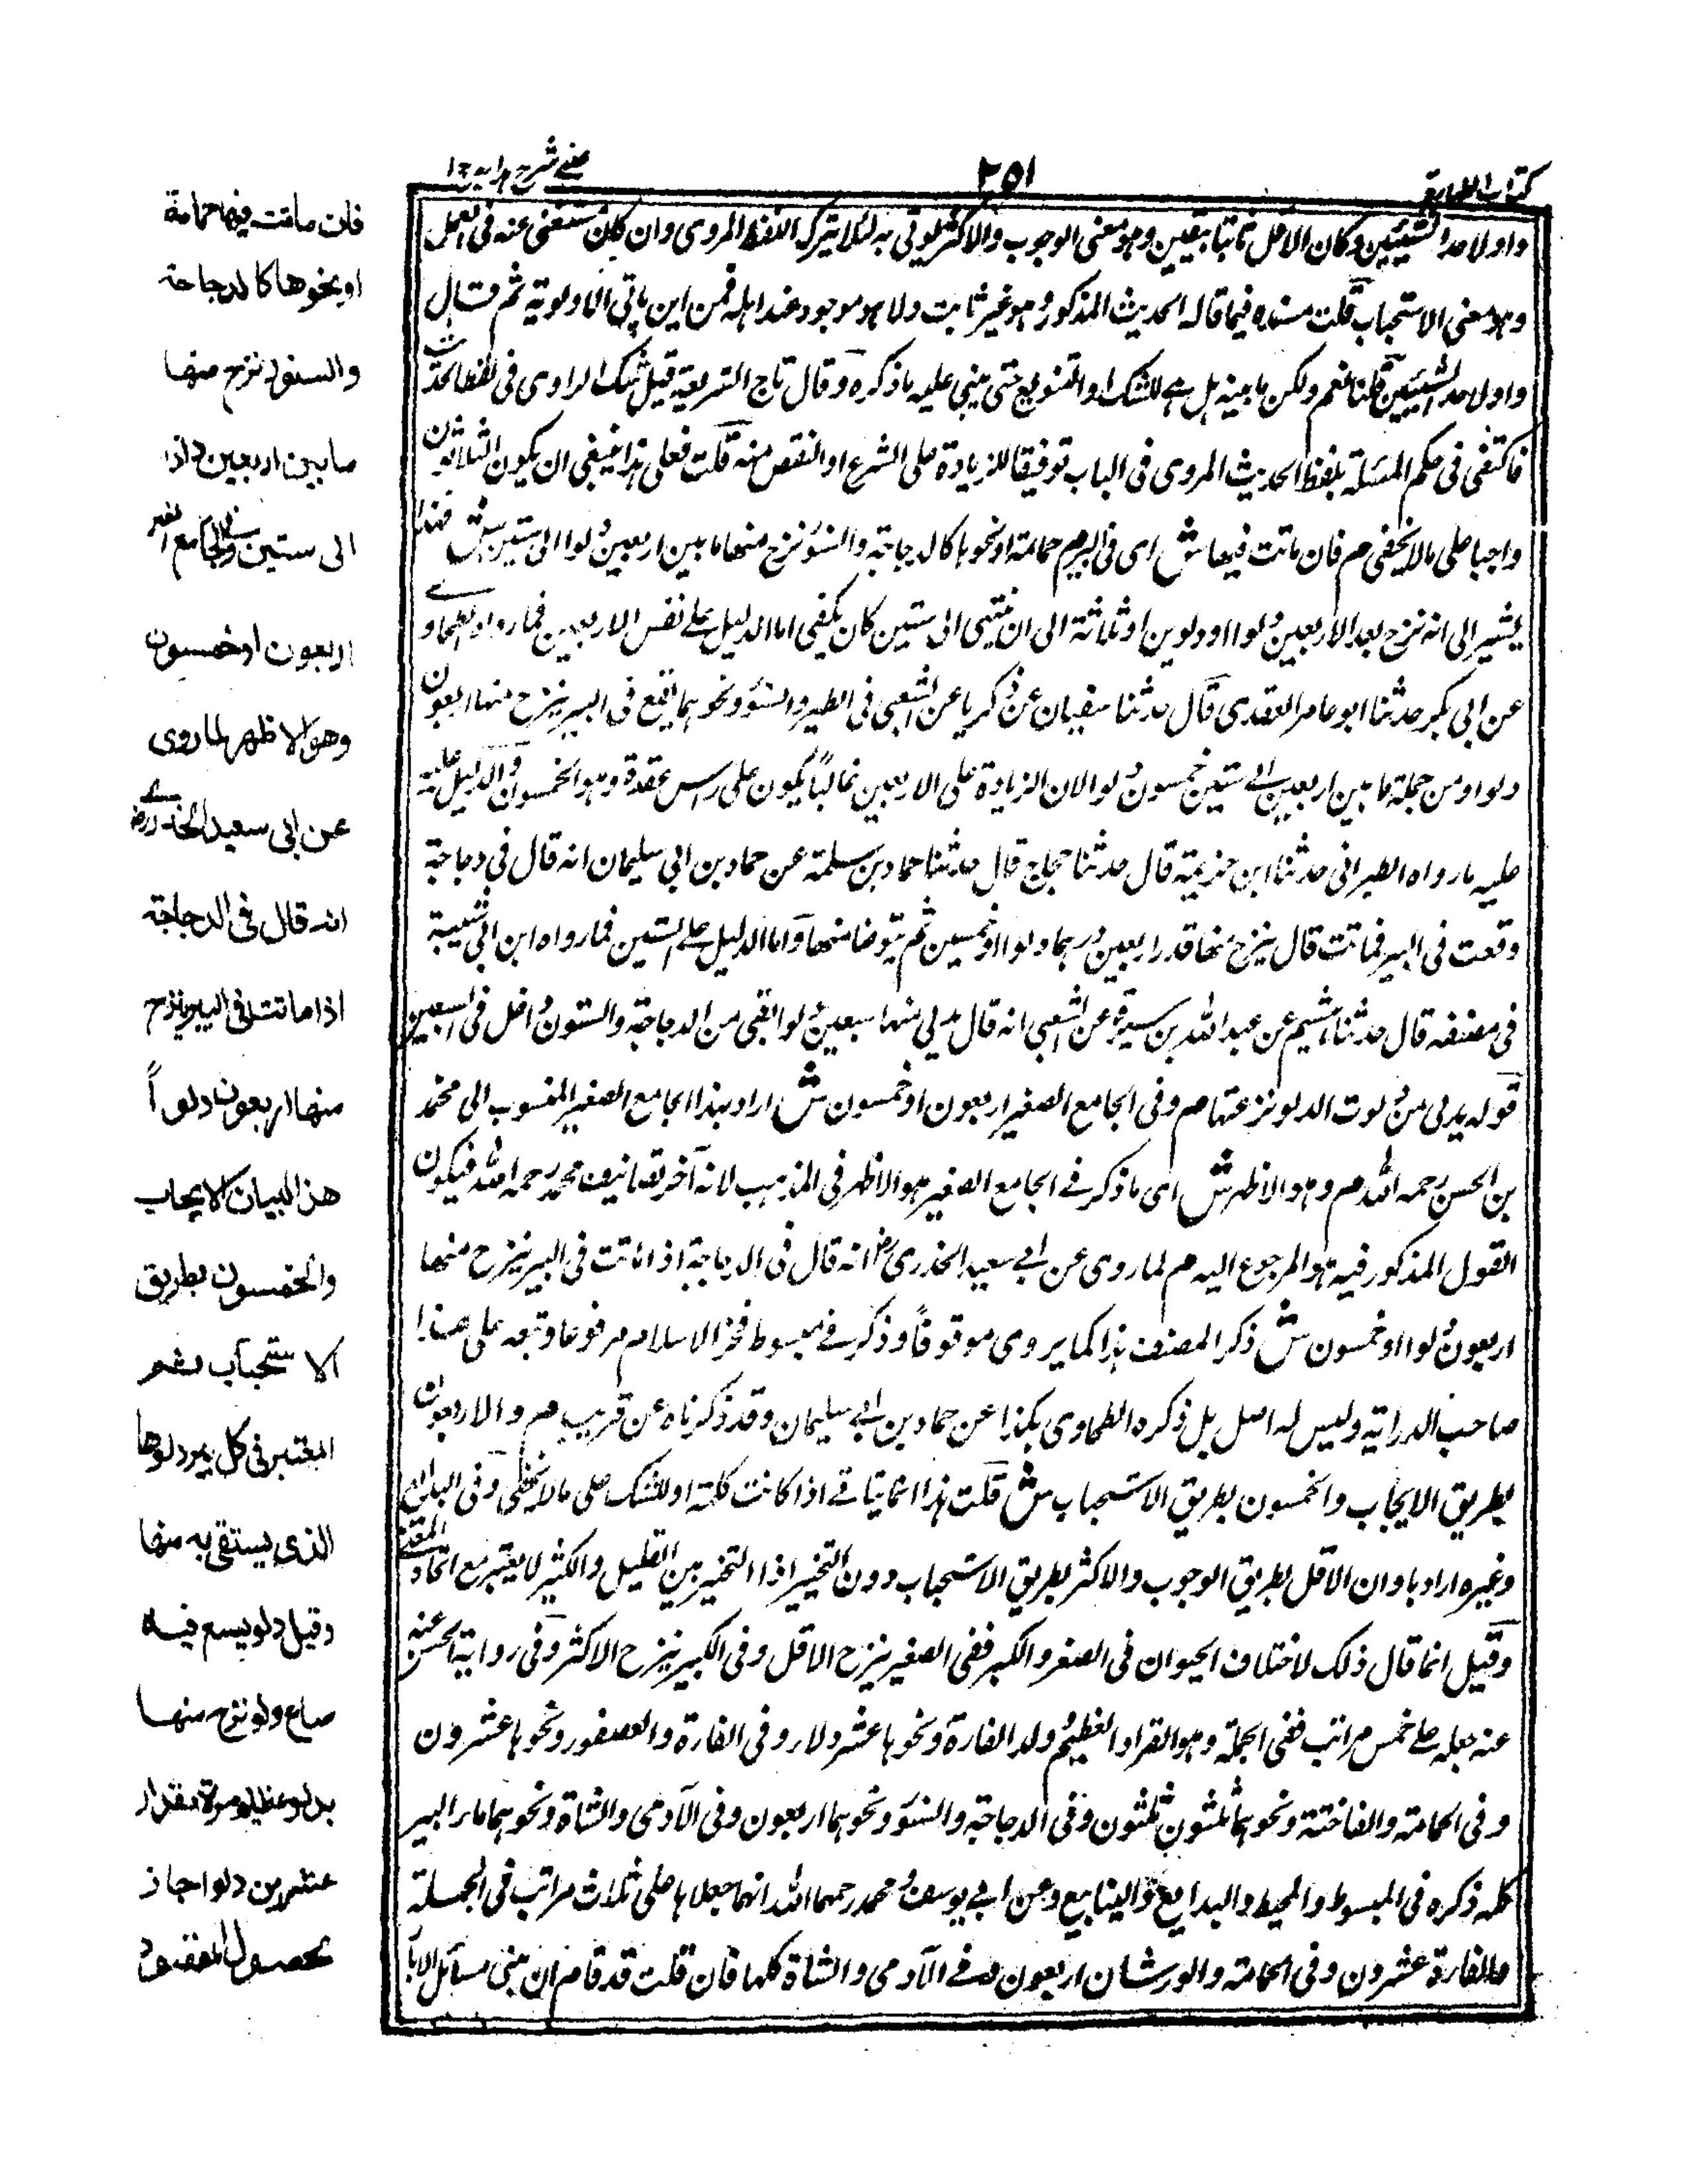 كتاب الطهارة
٢٥١
عيني شرح هدايه ج ١
واو لاحد الشيئين وكان الاقل ثابتا بيقين وهو معنى الوجوب والاكثر يؤتى به لئلا يترك اللفظ المروى وان كان مستغنى عنه فى العمل
وهو معنى الاستحباب قلت مسنده فيما قاله الحديث المذكور وهو غير ثابت ولا هو موجود عند اهله فمن اين ياتى الاولوية ثم قال
واو لاحد الشيئين قلنا نعم ولكن ما بينه هل هى للشك او للتنويع حتى يبنى عليه ما ذكره وقال تاج الشريعة قيل شك الراوى فى لفظ الحديث
فاكتفى فى حكم المسئلة بلفظ الحديث المروى فى الباب توفيقا للزيادة على الشرع او النقص منه قلت فعلى هذا ينبغى ان يكون الثلاثون
واجبا على ما لا يخفى م فان ماتت فيها ش اى فى البير م حمامة او نحوها كالدجاجة والسنور نزح منها ما بين اربعين دلوا الى ستين ش هذا
يشير الى انه نزح بعد الاربعين دلوا او دلوين او ثلاثة الى ان ينتهى الى ستين كان يكفى اما الدليل على نفس الاربعين فما رواه الطحاوى
عن ابى بكر حدثنا ابو عامر العقدى قال حدثنا سفيان عن زكريا عن الشعبى فى الطير والسنور ونحوهما يقع فى البير ينزح منها اربعون
دلوا ومن جملة ما بين اربعين الى ستين خمسون دلوا لان الزيادة على الاربعين غالبا يكون على راس عقدة وهو الخمسون والدليل عليه
عليه ما رواه الطبرانى حدثنا ابن خزيمة قال حدثنا حجاج قال حدثنا حماد بن سلمة عن حماد بن ابى سليمان انه قال فى دجاجة
وقعت فى البير فماتت قال ينزح منها قدر اربعين درهما دلوا او خمسين ثم يتوضا منها واما الدليل على الستين فما رواه ابن ابى شيبة
فى مصنفه قال حدثنا هشيم عن عبد الله بن سبرة عن الشعبى انه قال يدلى منها سبعين دلوا يعنى من الدجاجة والستون داخل فى السبعين
قوله يدلى من دلوت الدلو نزعتها م وفى الجامع الصغير اربعون او خمسون ش اراد بهذا الجامع الصغير المنسوب الى محمد
بن الحسن رحمه الله م وهو الاظهر ش اى ما ذكر فى الجامع الصغير هو الاظهر فى المذهب لانه آخر تصانيف محمد رحمه الله فيكون
القول المذكور فيه هو المرجوع اليه م لما روى عن ابى سعيد الخدرى رض انه قال فى الدجاجة اذا ماتت فى البير ينزح منها
اربعون دلوا او خمسون ش ذكر المصنف هذا كما يروى موقوفا وذكر فى مبسوط فخر الاسلام مرفوعا وتبعه على هذا
صاحب الدراية وليس له اصل بل ذكره الطحاوى هكذا عن حماد بن ابى سليمان وقد ذكرناه عن قريب م والاربعون
بطريق الايجاب والخمسون بطريق الاستحباب ش قلت هذا انما يتاتى اذا كانت كلمة او للشك على ما لا يخفى وفى البدايع
وغيره ارادبا وان الاقل بطريق الوجوب والاكثر بطريق الاستحباب دون التخيير اذا التخيير بين القليل والكثير لا يعتبر مع اتحاد المقصود
وقيل انما قال ذلك لاختلاف الحيوان فى الصغر والكبر ففى الصغير ينزح الاقل وفى الكبير ينزح الاكثر وفى رواية الحسن عنه
عنه جعله على خمس مراتب ففى الجملة وهو القراد العظيم وولد الفارة ونحوها عشر دلاء وفى الفارة والعصفور ونحوها عشرون
وفى الحمامة والفاختة ونحوهما ثلثون ثلثون وفى الدجاجة والسنور ونحوهما اربعون وفى الآدمى والشاة ونحوهما ماء البير
كله ذكره فى المبسوط والمحيط والبدايع والينابيع وعن ابى يوسف ومحمد رحمهما الله انهما جعلاها على ثلاث مراتب فى الجملة
والفارة عشرون وفى الحمامة والورشان اربعون وفى الآدمى والشاة كلها فان قلت قد قام ان مبنى مسائل الابآ
فان ماتت فيها حمامة
او نحوها كالدجاجة
والسنور نزح منها
ما بين اربعين دلوا
الى ستين وفى الجامع الصغير
اربعون او خمسون
وهو الاظهر لما روى
عن ابى سعيد الخدرى رض
انه قال فى الدجاجة
اذا ماتت فى البير ينزح
منها اربعون دلواً
هذا لبيان الايجاب
والخمسون بطريق
الاستحباب ثم
المعتبر فى كل بير دلوها
الذى يستقى به منها
وقيل دلو يسع فيه
صاع ولو نزح منها
بدلو عظيم مرة مقدار
عشرين دلوا جاز
لحصول المقصود